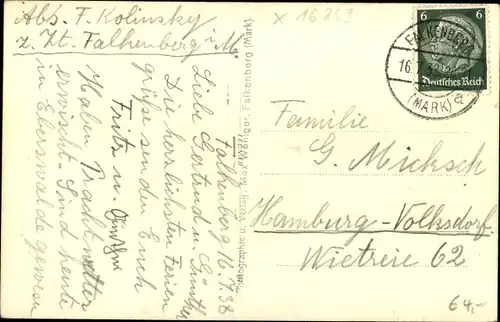 Abs. F. Kolinsky
z. Zt. Falkenberg i. M.
x 16253
6 6
Deutsches Reich
FALKENBERG
16.7.
(MARK)
a
Falkenberg 16.7.38
Liebe Gertrud u. Günther
Die herrlichsten Ferien
grüße senden Euch
Fritz u.
Haben Prachtwetter
erwischt. Sind heute
in Eberswalde gewesen
Photographie u. Verlag: Max Falkenberg (Mark)
Familie
G. Micksch
Hamburg-Volksdorf
Wietreie 62
64,-